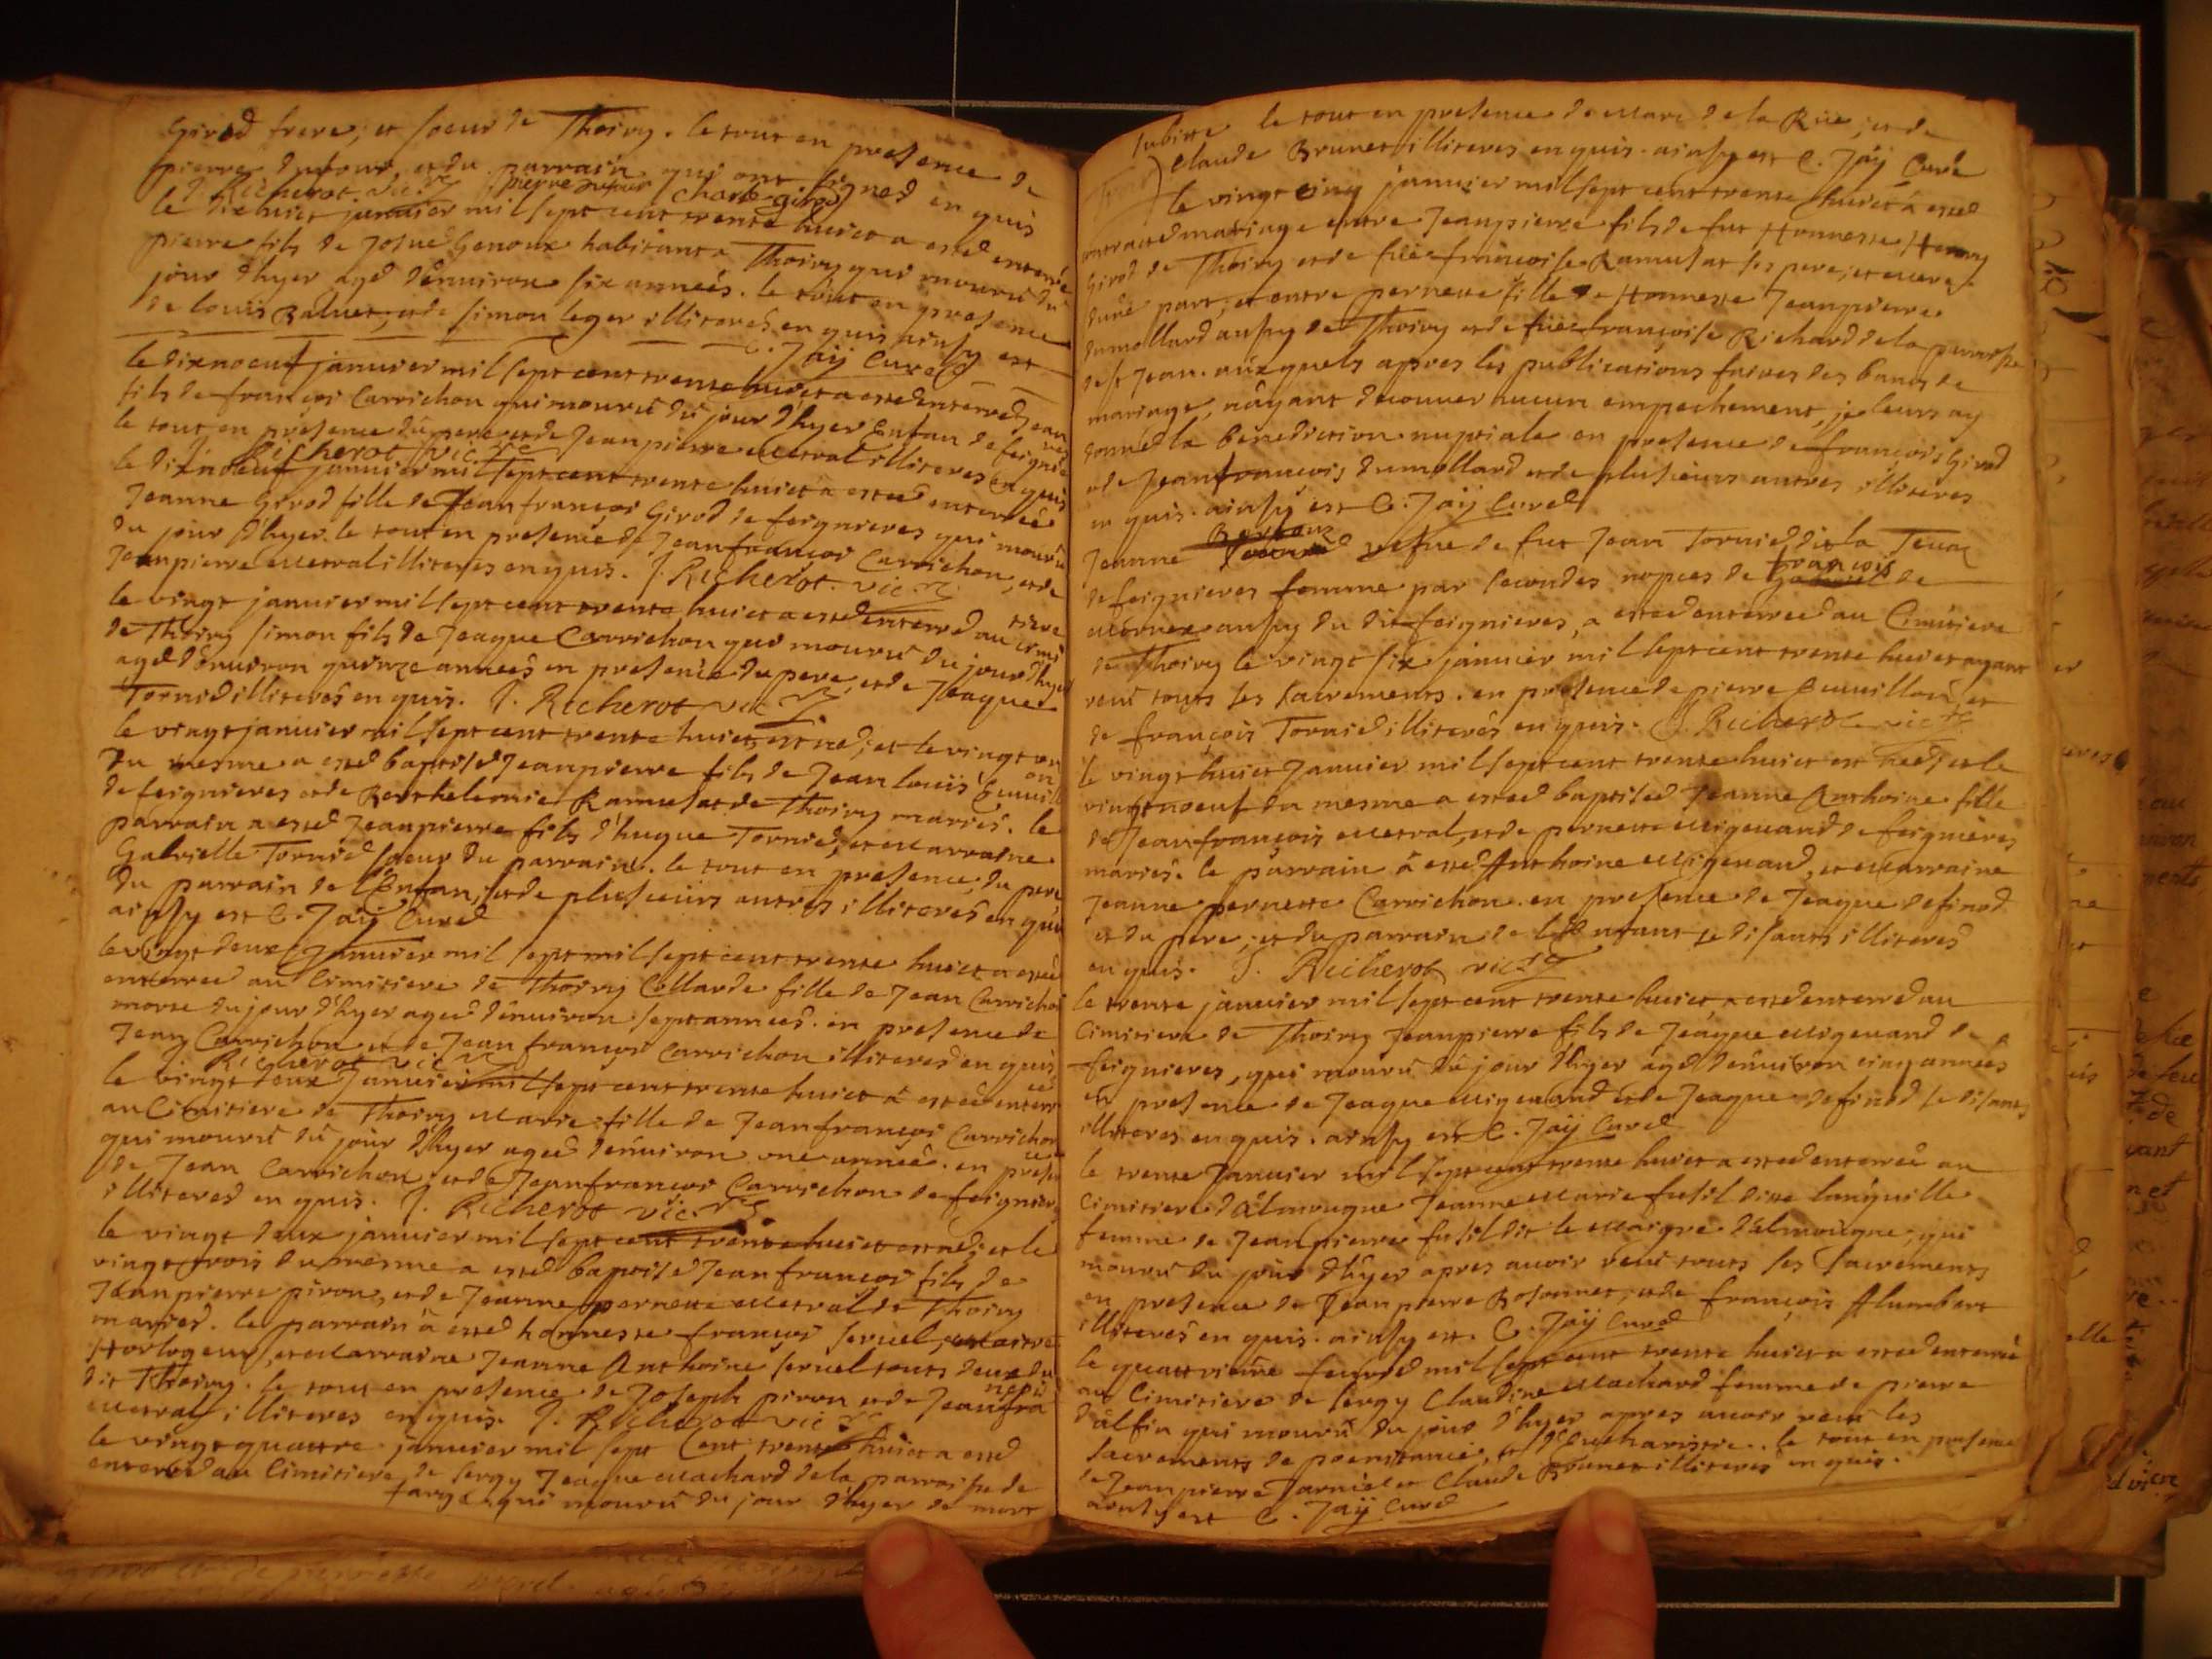 Girod frere, et soeur de Thoiry. le tout en presence de
pierre dufour, et du parrain qui ont signed en quis
J. Richerot vic.re pierre dufour Charle girod
le dixhuict januier mil sept cent trente huict a ested enterré
pierre fils de Josué Genoux habitant a Thoiry qui mouru du
jour d'hyer aged d'enuiron six années. le tout en presence
de louis Baluet, et de simon leger illiteres en quis ainsy est
C. Jaÿ Cured
le dixnoeuf januier mil sept cent trente huict a ested enterred jean
fils de françois Carrichon qui mouru du jour d'hyer Enfan de feignie
res
le tout en presence du pere et de Jeanpierre mestral illiteres en quis
J. Richerot vic.re
le dixnoeuf januier mil sept cent trente huict a ested enterrée
Jeanne Girod fille de Jeanfrançois Girod de feignieres qui mouru
du jour d'hyer. le tout en presence de Jeanfrançois Carrichon, et de
Jeanpierre mestral illiteres en quis. J. Richerot vic.re
le vingt januier mil sept cent trente huict a ested enterred au cimi
tiere
de Thoiry simon fils de Jeaque Carrichon qui mouru du jour d'hyer
aged d'enuiron quinze années en presence du pere, et de Jeaque
Tornied illiteres en quis. J. Richerot vic.re
le vingt januier mil sept cent trente huict est né, et le vingt un
du mesme a ested baptised Jeanpierre fils de Jean louis Emuill
on
de feignieres et de Barthelemie Ramusat de Thoiry mariés. le
parrain a ested Jeanpierre fils d'hugue Tornied, et marraine
Gabrielle Tornied soeur du parrain. le tout en presence du pere
du parrain de l'Enfan, et de plusieurs autres illiteres en quis
ainsy est C. Jaÿ Cured
le vingt deux januier mil sept mil sept cent trente huict a estée
enterrée au Cimitiere de Thoiry Collarde fille de Jean Carrichon
morte du jour d'hyer agée d'enuiron sept années. en presence de
Jean Carrichon et de Jean françois Carrichon illiteres en quis
J. Richerot vic.re
le vingt deux Januier mil sept cent trente huict a estée enterr
ée
au Cimitiere de Thoiry marie fille de Jeanfrançois Carrichon
qui mouru du jour d'hyer agée d'enuiron une année. en presen
ce
de Jean Carrichon, et de Jeanfrançois Carrichon de feignieres
illiteres en quis. J. Richerot vic.re
le vingt deux januier mil sept cent trente huict est né, et le
vingt trois du mesme a ested baptised Jeanfrançois fils de
Jeanpierre piron, et de Jeanne pernette mestral de Thoiry
maried. le parrain a ested honneste françois seruel, maistre
Horlogeur, et marraine Jeanne Anthoine seruel touts deux du
dit Thoiry. le tout en presence de Joseph piron et de Jeanfra
nçois
mestral illiteres en quis. J. Richerot vic.re
le vingt quattre januier mil sept Cent trente huict a ested
enterred au Cimitiere de sergy Jeaque machard de la parroisse de
farge qui mouru du jour d'hyer de mort
subitte le tout en presence de marc de la Rüe, et de
Claude Brunet illiteres en quis. ainsy est C. Jaÿ Curé
le vingt cinq januier mil sept cent trente huict a ested
contracted mariage entre Jeanpierre fils de fut Honneste Henry
Girod de Thoiry et de füe françoise Ramusat ses pere, et mere
d'une part, et entre pernette fille de Honneste Jeanpierre
dumollard aussy de Thoiry et de füe françoise Richard de la parroisse
de st Jean. auxquels apres les publications faites des bancs de
mariage, n'ayant decouuer aucun empechement, je leurs ay
donned la benediction nuptiale en presence de françois Girod
et de Jeanfrançois dumollard et de plusieurs autres illiteres
en quis. ainsy est C. Jaÿ Cured
Jeanne vefue de fut Jean Tornied dit la
de feignieres femme par secondes nopces de françois de
mornex aussy du dit feignieres, a estée enterrée au Cimitiere
de Thoiry le vingt six januier mil sept cent trente huict ayant
receu touts ses sacrements. en presence de pierre Emuillon, et
de françois Tornied illiteres en quis. J. Richerot vic.re
le vingt huict Januier mil sept cent trente huict est née, et le
vingt noeuf du mesme a estée baptisée Jeanne Anthoine fille
de Jeanfrançois mestral, et de pernette migenand de feignieres
mariés. le parrain a ested Anthoine migenand, et marraine
Jeanne pernette Carrichon. en presence de Jeaque defined
et du pere, et du parrain de l'Enfant se disants illiteres
en quis. J. Richerot vic.re
le trente januier mil sept cent trente huict a ested enterred au
Cimitiere de Thoiry Jeanpierre fils de Jeaque migenand de
feignieres, qui mouru du jour d'hyer aged d'enuiron cinq années
en presence de Jeaque migenand et de Jeaque defined se disants
illiteres en quis. ainsy est C. Jaÿ Cured
le trente Januier mil sept cent trente huict a estée enterrée au
Cimitiere d'almougne Jeanne marie fusil ditte languille
femme de Jeanpierre fusil dit le maigre d'almougne, qui
mouru du jour d'hyer apres auoir receu touts ses sacrements
en presence de Jeanpierre Rosonnet, et de françois Humbert
illiteres en quis. ainsy est. C. Jaÿ Cured
le quattrieme feured mil sept cent trente huict a estée enterrée
au Cimitiere de sergy Claudine machard femme de pierre
d'alfin qui mouru du jour d'hyer apres auoir receu les
sacrements de poenitance, et d'Eucharistie. le tout en presence
de Jeanpierre Tarnied et Claude Brunet illiteres en quis.
ainsy est C. Jaÿ Cured